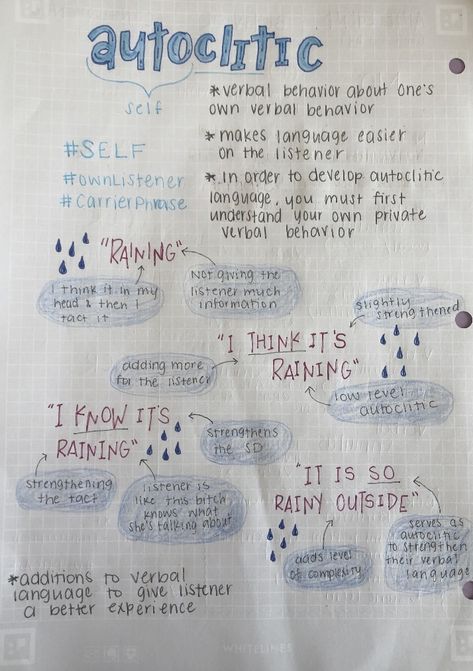 autoclitic
self
*verbal behavior about one's
own verbal behavior
*makes language easier
on the listener
*In order to develop autoclitic
language, you must first
understand your own private
verbal behavior
#SELF
#ownListener
#CarrierPhrase
"RAINING"
I think it in my
head & then I
tact it
Not giving the
listener much
information
slightly
strengthened
"I THINK IT'S
RAINING"
adding more
for the listener
low level
autoclitic
"I KNOW IT'S
RAINING"
strengthens
the SD
strengthening
the tact
listener is
like this bitch
knows what
she's talking about
"IT IS SO
RAINY OUTSIDE"
adds level
of complexity
serves as
autoclitic to
strengthen
their verbal
language
*additions to verbal
language to give listener
a better experience
WHITELINES